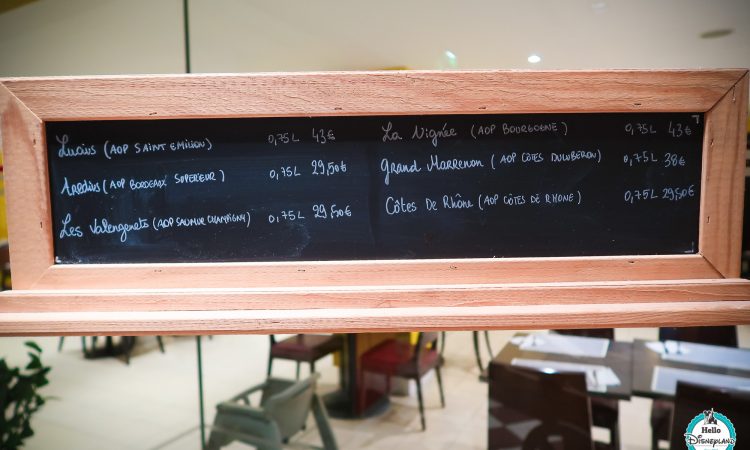 Lucius (AOP SAINT EMILION) 0,75L 43€
Aredius (AOP BORDEAUX SUPERIEUR) 0,75L 29,50€
Les Valengenets (AOP SAUMUR CHAMPIGNY) 0,75L 29,50€
La Vignée (AOP BOURGOGNE) 0,75L 43€
Grand Marrenon (AOP CÔTES DU LUBÉRON) 0,75L 38€
Côtes De Rhône (AOP CÔTES DE RHONE) 0,75L 29,50€
Hello
DISNEYLAND